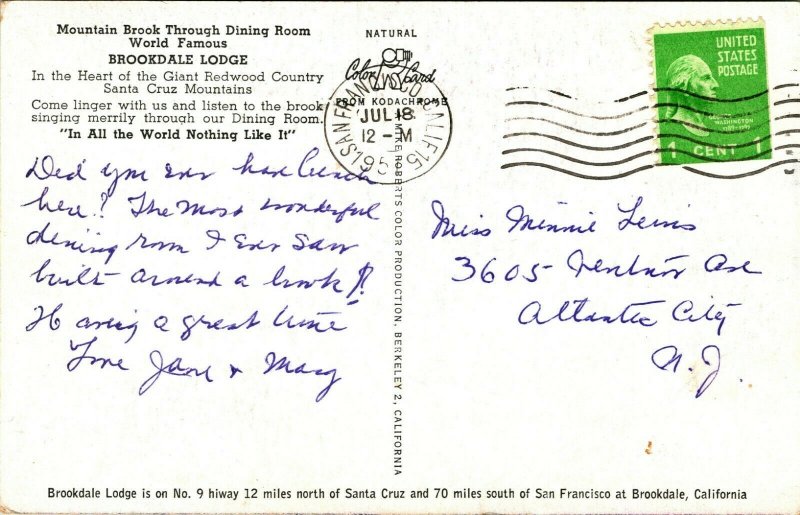 Mountain Brook Through Dining Room
World Famous
BROOKDALE LODGE
In the Heart of the Giant Redwood Country
Santa Cruz Mountains
Come linger with us and listen to the brook
singing merrily through our Dining Room.
"In All the World Nothing Like It"
NATURAL
Color Card
FROM KODACHROME
SAN FRANCISCO CALIF 15
JUL 18
12 - M
195
UNITED
STATES
POSTAGE
WASHINGTON
1789-1797
1 CENT 1
Did you ever have lunch
here? The most wonderful
dining room I ever saw
built around a brook!!
Having a great time
Love Jane & Mary
MIKE ROBERTS COLOR PRODUCTION, BERKELEY 2, CALIFORNIA
Miss Minnie Lewis
3605 Ventnor Ave
Atlantic City
N. J.
Brookdale Lodge is on No. 9 hiway 12 miles north of Santa Cruz and 70 miles south of San Francisco at Brookdale, California